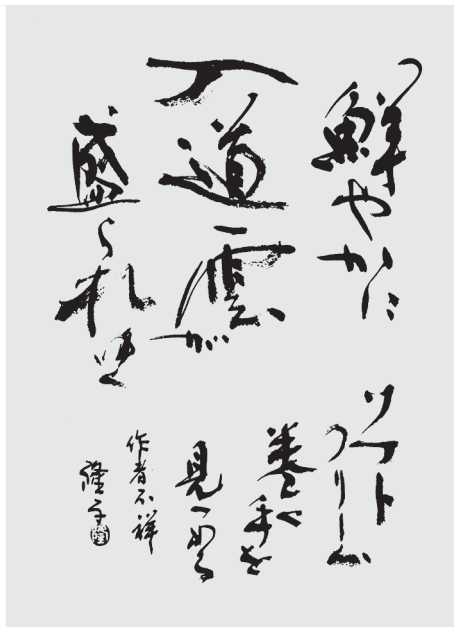 鮮やかに
入道雲が
盛られゆく
ソフト
クリーム
巻く手を
見つめる
作者不祥